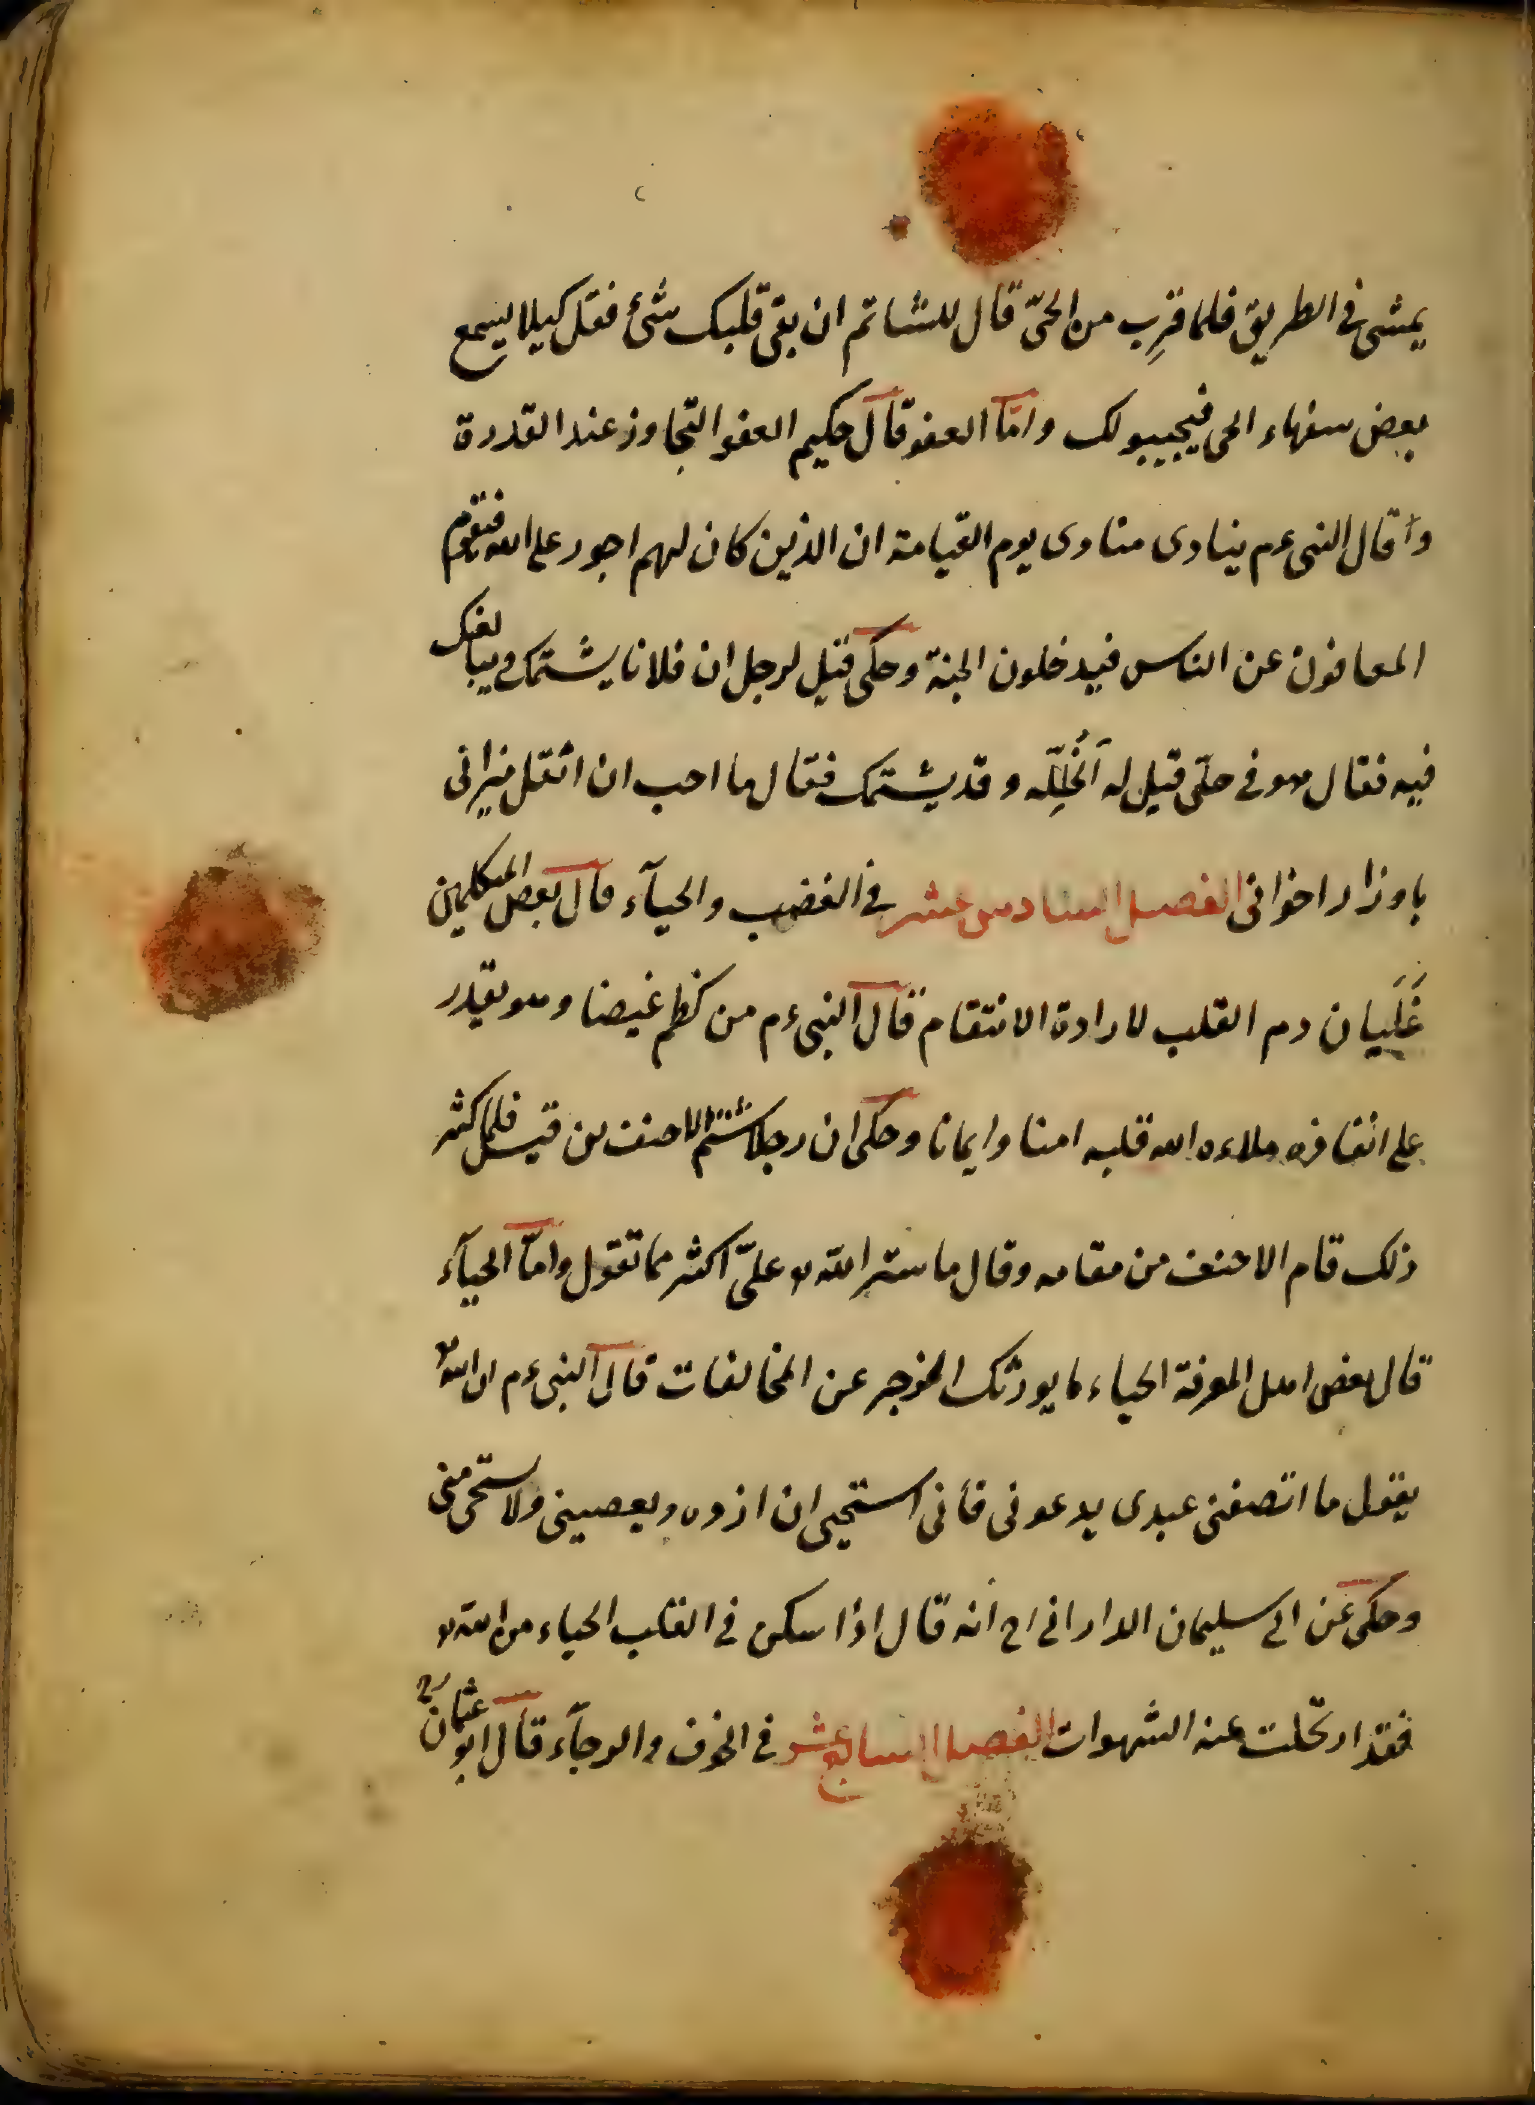 يمشى فى الطريق فلما قرب من الحىّ قال للشاتم ان بقى قلبك شئ فقل كيلا يسمع
بعض سفهاء الحى فيجيبولك وامّا العفو قال حكيم العفو التجاوز عند القدرة
وقال النبى عم ينادى منادى يوم القيامة ان الذين كان لهم اجور على الله فيقوم
المعافون عن الناس فيدخلون الجنة وحكى قيل لرجل ان فلانا يشتمك و يبالغك
فيه فقال هو فى حلّى قيل له أتُحلِّله و قد يشتمك فقال ما احب ان اثقل ميزانى
باوزار اخوانى الفصل السادس عشر فى الغضب والحيآء قال بعض المتكلمين
غَلَيان دم القلب لارادة الانتقام قال النبى عم من كظم غيضا وهو يقدر
على انفاذه ملاءه الله قلبه امنا وايمانا وحكى ان رجلا شتم الاحنف بن قيس فلما كثر
ذلك قام الاحنف من مقامه وقال ما ستر الله علىّ اكثر مما تقول وامّا الحيآء
قال بعض اهل المعرفة الحياء ما يورثك الخوجر عن المخالفات قال النبى عم ان الله
يقول ما اتصفنى عبدى يدعونى فأنى استحيى ان ازده ويعصينى ولا ستحى منى
وحكى عن ابى سليمان الدارانى رح انه قال اذا سكن فى القلب الحياء من الله
فقد ارتحلت عنه الشهوات الفصل السابع عشر فى الخوف والرجآء قال ابو عثمان رح